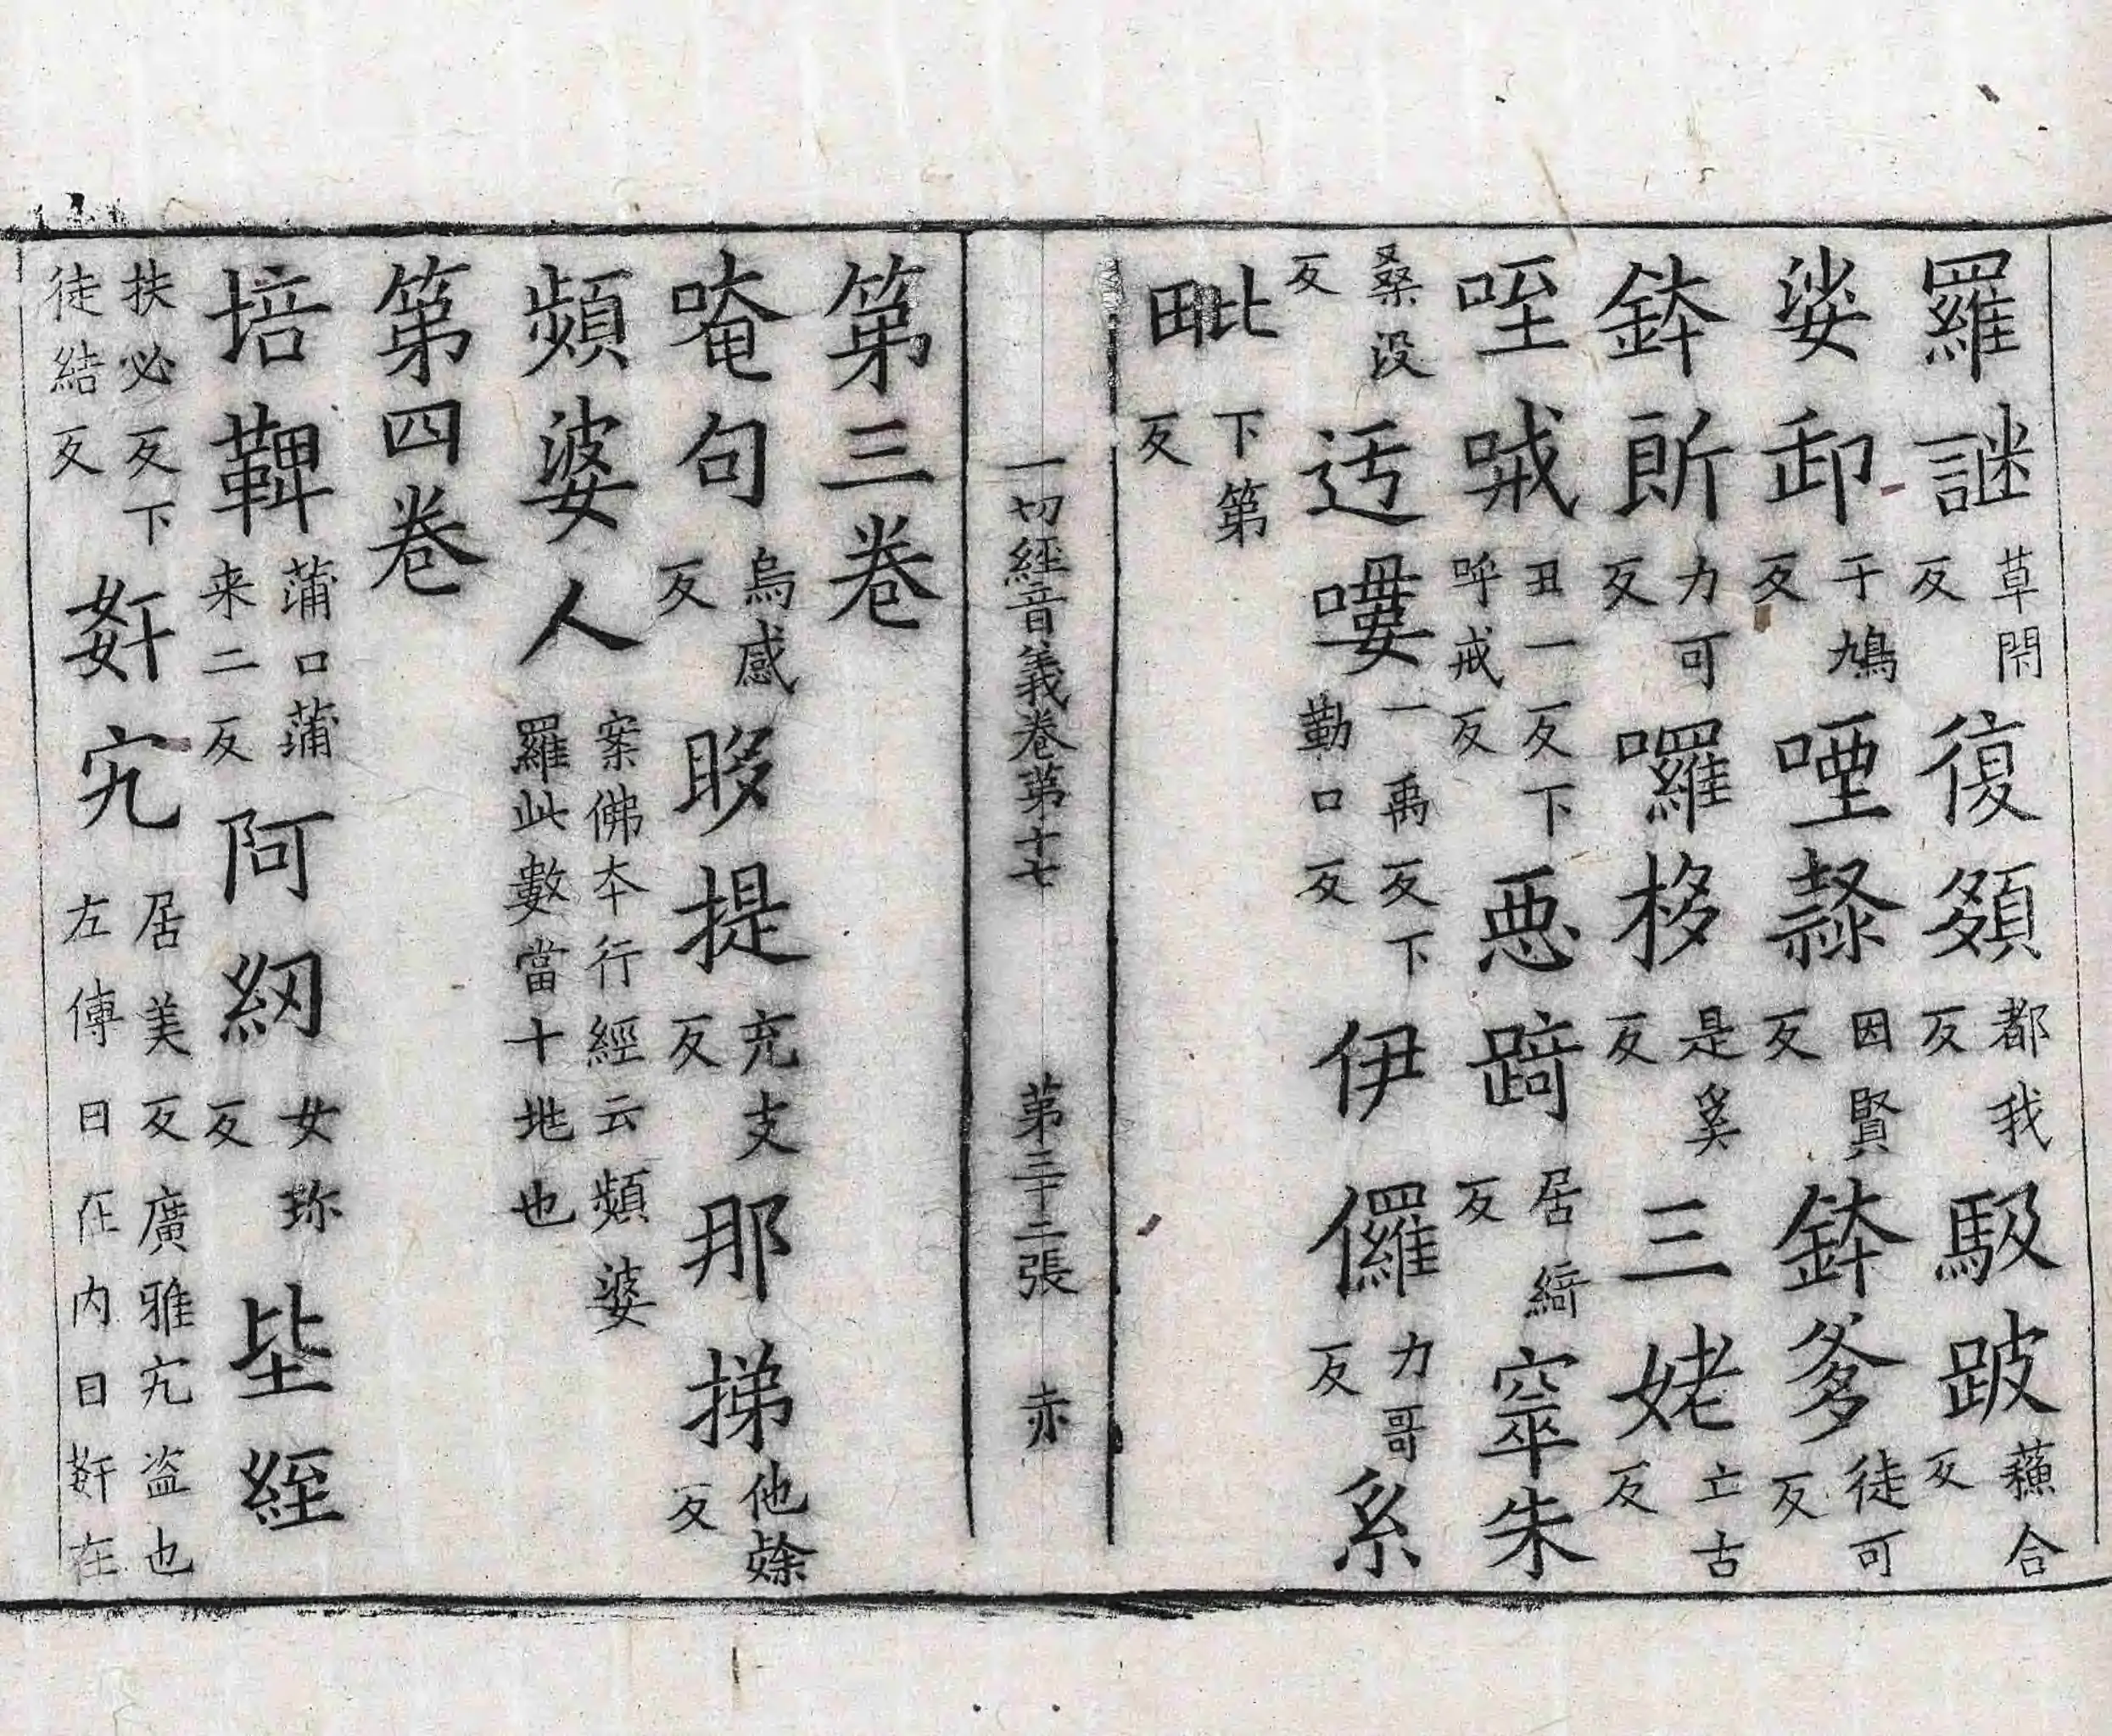 羅謎草閇反復䫂都我反馺跛蘓合反
娑卸于鳩反㗃隸因賢反鉢爹徒可反
鉢斮力可反囉栘是奚反三姥亡古反
咥㖑丑一反下呼戒反惡踦居綺反窣朱
桑没反迃嘍一禹反下勤口反伊儸力哥反系
毗下第反
一切經音義卷苐十七 苐三十二張 赤
第三卷
唵句烏感反眵提充支反那挮他㷿反
頻婆人案佛本行經云頻婆羅此數當十地也
第四卷
培鞞蒲口蒲来二反阿紉女珎反坒絰
扶必反下徒結反姧宄居美反廣雅宄盗也左傳曰在内曰姧在